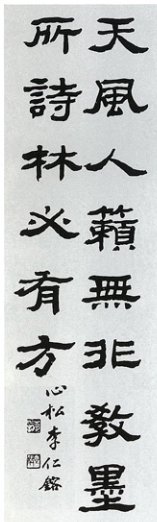 天風人籟無非教墨
所詩林必有方
心松李仁鎔